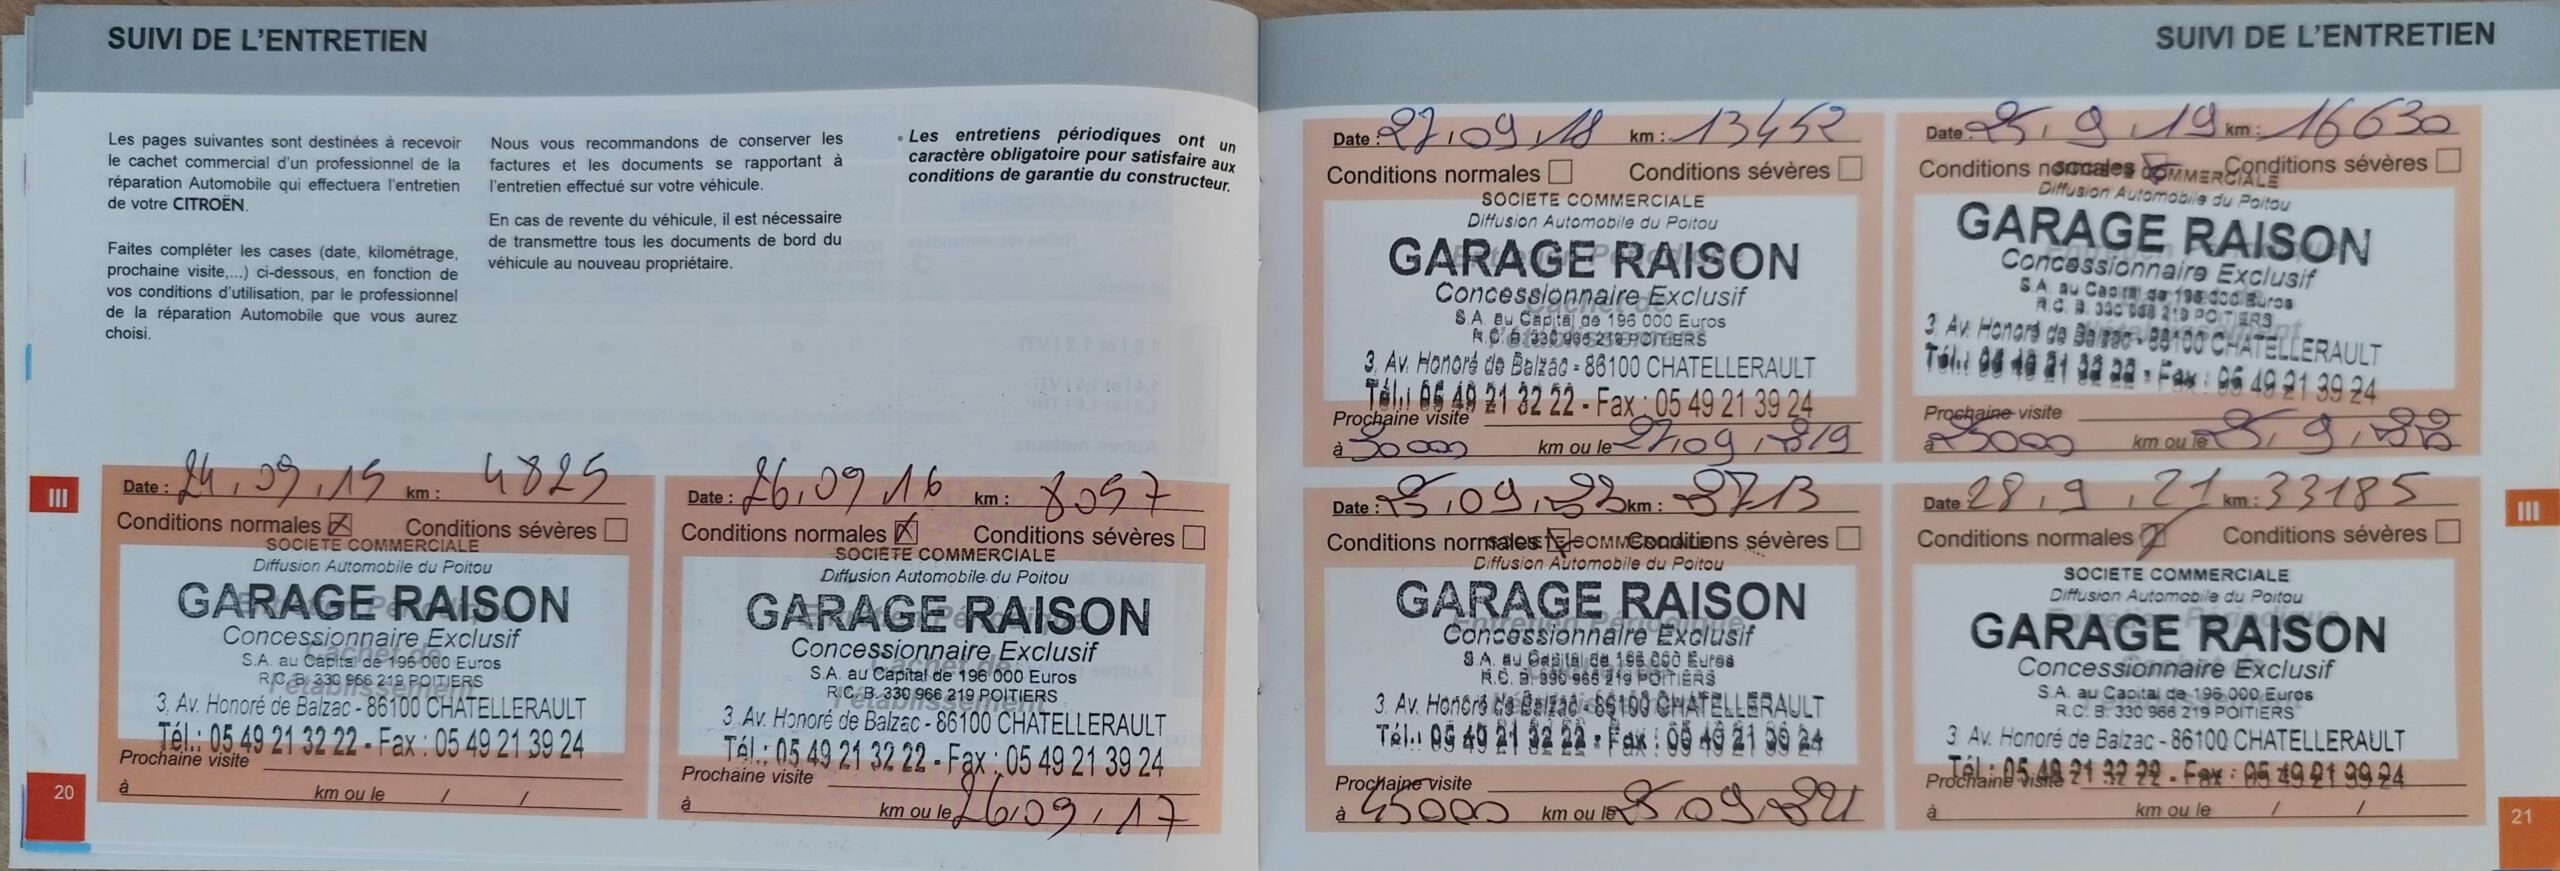 SUIVI DE L'ENTRETIEN
Les pages suivantes sont destinées à recevoir
le cachet commercial d'un professionnel de la
réparation Automobile qui effectuera l'entretien
de votre CITROËN.
Faites compléter les cases (date, kilométrage,
prochaine visite,...) ci-dessous, en fonction de
vos conditions d'utilisation, par le professionnel
de la réparation Automobile que vous aurez
choisi.
Nous vous recommandons de conserver les
factures et les documents se rapportant à
l'entretien effectué sur votre véhicule.
En cas de revente du véhicule, il est nécessaire
de transmettre tous les documents de bord du
véhicule au nouveau propriétaire.
Les entretiens périodiques ont un
caractère obligatoire pour satisfaire aux
conditions de garantie du constructeur.
III
Date : 24,09,15 km : 4825
Conditions normales Conditions sévères
SOCIETE COMMERCIALE
Diffusion Automobile du Poitou
GARAGE RAISON
Concessionnaire Exclusif
S.A. au Capital de 196 000 Euros
R.C. B. 330 966 219 POITIERS
3, Av. Honoré de Balzac - 86100 CHATELLERAULT
Tél.: 05 49 21 32 22 - Fax : 05 49 21 39 24
Prochaine visite
à km ou le / /
Date : 26,09,16 km : 8057
Conditions normales Conditions sévères
SOCIETE COMMERCIALE
Diffusion Automobile du Poitou
GARAGE RAISON
Concessionnaire Exclusif
S.A. au Capital de 196 000 Euros
R.C. B. 330 966 219 POITIERS
3, Av. Honoré de Balzac - 86100 CHATELLERAULT
Tél.: 05 49 21 32 22 - Fax : 05 49 21 39 24
Prochaine visite
à km ou le 26,09,17
20
SUIVI DE L'ENTRETIEN
Date : 27,09,18 km : 13452
Conditions normales Conditions sévères
SOCIETE COMMERCIALE
Diffusion Automobile du Poitou
GARAGE RAISON
Concessionnaire Exclusif
S.A. au Capital de 196 000 Euros
R.C. B. 330 966 219 POITIERS
3, Av. Honoré de Balzac - 86100 CHATELLERAULT
Tél.: 05 49 21 32 22 - Fax : 05 49 21 39 24
Prochaine visite
à 30000 km ou le 27,09,
Date : 25,9,19 km : 16630
Conditions normales Conditions sévères
SOCIETE COMMERCIALE
Diffusion Automobile du Poitou
GARAGE RAISON
Concessionnaire Exclusif
S.A. au Capital de 196 000 Euros
R.C. B. 330 966 219 POITIERS
3, Av. Honoré de Balzac - 86100 CHATELLERAULT
Tél.: 05 49 21 32 22 - Fax : 05 49 21 39 24
Prochaine visite
à 25000 km ou le 25,9,
Date : 25,09, km :
Conditions normales Conditions sévères
SOCIETE COMMERCIALE
Diffusion Automobile du Poitou
GARAGE RAISON
Concessionnaire Exclusif
S.A. au Capital de 196 000 Euros
R.C. B. 330 966 219 POITIERS
3, Av. Honoré de Balzac - 86100 CHATELLERAULT
Tél.: 05 49 21 32 22 - Fax : 05 49 21 39 24
Prochaine visite
à 45000 km ou le 25,09,
Date : 28,9,21 km : 33185
Conditions normales Conditions sévères
SOCIETE COMMERCIALE
Diffusion Automobile du Poitou
GARAGE RAISON
Concessionnaire Exclusif
S.A. au Capital de 196 000 Euros
R.C. B. 330 966 219 POITIERS
3, Av. Honoré de Balzac - 86100 CHATELLERAULT
Tél.: 05 49 21 32 22 - Fax : 05 49 21 39 24
Prochaine visite
à km ou le / /
III
21